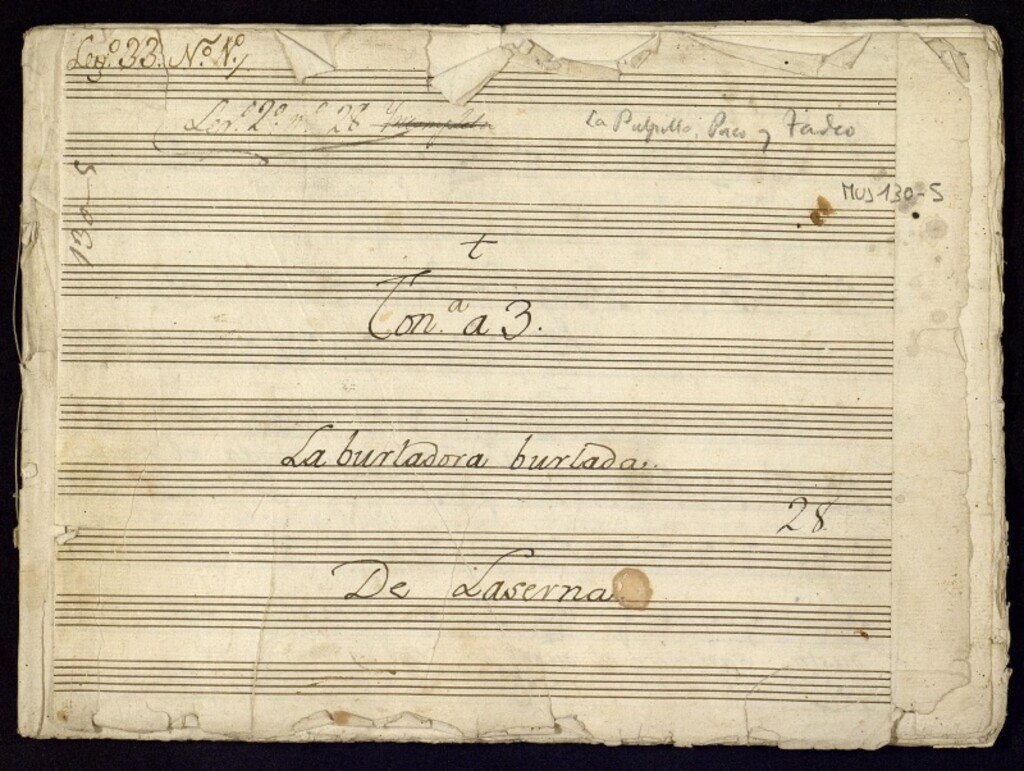 Leg.º 33. N.º N.º
Leg.º 2.º n.º 28 Yncompleta
La Pulpillo, Paco y Tadeo
130-5
MUS 130-5
t
Ton.ª a 3.
La burladora burlada.
28
De Laserna